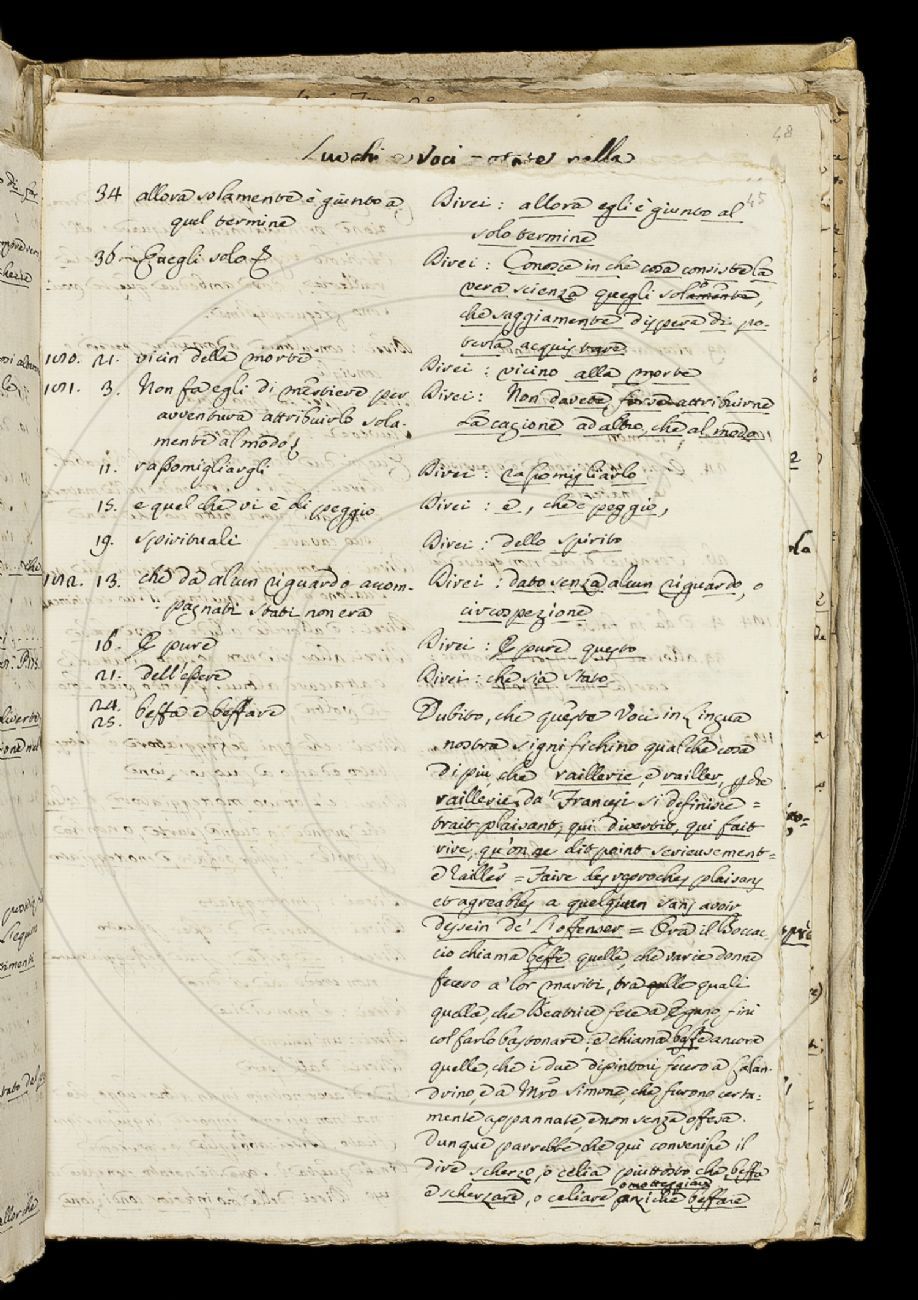 48
Luochi e Voci nella
45
34 allora solamente è giunto a
quel termine
Direi : allora egli è giunto al
solo termine
36 Quegli solo &
Direi : Conosce in che cosa consiste la
vera scienza quegli solamente,
che saggiamente dispera di po-
terla acquistare
1010. 21. vicin della morte
Direi : vicino alla morte
1011. 3. Non fa egli di mestiere per
avventura attribuirlo sola-
mente al modo
Direi : Non dovete forse attribuirne
la cagione ad altro, che al modo
11. rassomigliargli
Direi : rassomigliarlo
15. e quel che vi è di peggio
Direi : e, che è peggio,
19. spirituali
Direi : dello spirito
1012. 13. che da alcun riguardo accom-
pagnati stati non era
Direi : dato senza alcun riguardo, o
circospezione
16. E pure
Direi : E pure questo
21. dell'essere
Direi : che sia stato
24.
25. beffa e beffare
Dubito, che queste Voci in Lingua
nostra significhino qualche cosa
di più che raillerie, e railler, 
raillerie da' Francesi si definisce =
trait plaisant, qui divertit, qui fait
rire, qu'on ne dit point serieusement =
e Railler = Faire des reproches plaisans
et agreables a quelqu'un sans avoir
dessein de l'offenser = Ora il Bocca-
cio chiama beffe quelle, che varie donne
fecero a' lor mariti, tra quelle quali
quella, che Beatrice fece a Egano, finì
col farlo bastonare; e chiama beffe ancora
quelle, che i due dipintori fecero a Calan-
drino, e a Mro Simone, che furono certa-
mente appannate, e non senza offesa.
Dunque parrebbe che qui convenisse il
dire scherzo, o celia piuttosto che beffa
o motteggiare
e scherzare, o celiare anziché beffare